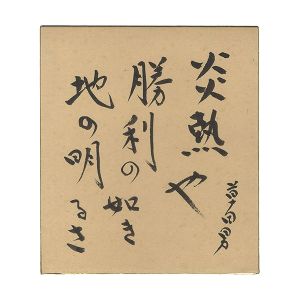 炎熱や
勝利の如き
地の明るさ
草田男